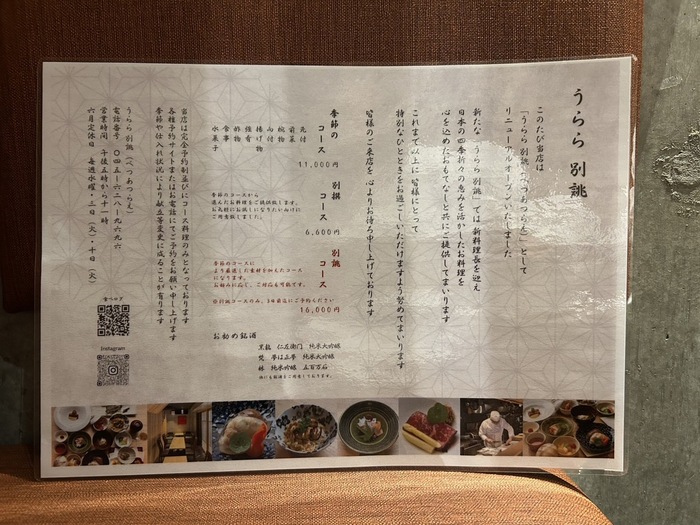 うらら 別誂
このたび当店は
「うらら 別誂（べつあつらえ）」として
リニューアルオープンいたしました
新たな「うらら 別誂」では新料理長を迎え
日本の四季折々の恵みを活かしたお料理を
心を込めたおもてなしと共にご提供してまいります
これまで以上に皆様にとって
特別なひとときをお過ごしいただけますよう努めてまいります
皆様のご来店を 心よりお待ち申し上げております
季節の
コース
11,000円
先付
前菜
椀物
向付
揚げ物
強肴
酢物
食事
水菓子
別撰
コース
6,600円
季節のコースから
選んだお料理をご提供致します。
お気軽にお試しになりたいむけに
ご用意致しました。
別誂
コース
季節のコースに
より厳選した食材を加えたコース
になります。
お好みに応じ、ご対応も可能です。
※別誂コースのみ、3日前迄にご予約ください
16,000円
お勧め銘酒
黒龍 仁左衛門 純米大吟醸
梵 夢は正夢 純米大吟醸
純米吟醸 五百万石
他にも銘酒をご用意しております。
当店は完全予約制並びにコース料理のみとなっております
各種予約サイトまたはお電話にてご予約をお願い申し上げます
季節や仕入れ状況により献立等変更に成ることが有ります
うらら 別誂（べつあつらえ）
電話番号 〇四五-六二八-九六九六
営業時間 午後五時から十一時
六月定休日 毎週水曜・三日（火）・十日（火）
食べログ
Instagram